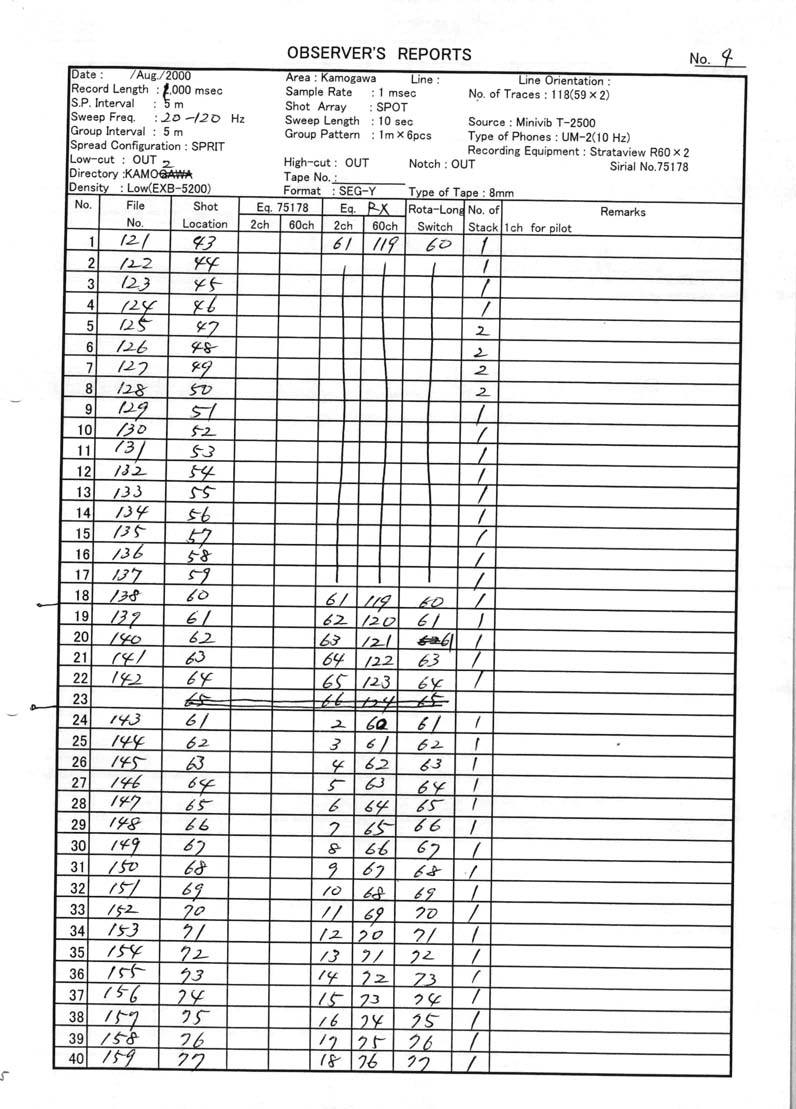 OBSERVER'S REPORTS
No. 4
Date : /Aug./2000 Area : Kamogawa Line : Line Orientation :
Record Length : 1,000 msec Sample Rate : 1 msec No. of Traces : 118(59×2)
S.P. Interval : 5 m Shot Array : SPOT
Sweep Freq. : 20-120 Hz Sweep Length : 10 sec Source : Minivib T-2500
Group Interval : 5 m Group Pattern : 1m×6pcs Type of Phones : UM-2(10 Hz)
Spread Configuration : SPRIT Recording Equipment : Strataview R60×2
Low-cut : OUT High-cut : OUT Notch : OUT Sirial No.75178
Directory :KAMOGAWA 2 Tape No. :
Density : Low(EXB-5200) Format : SEG-Y Type of Tape : 8mm
No. File No. Shot Location Eq. 75178 2ch 60ch Eq. RX 2ch 60ch Rota-Long Switch No. of Stack Remarks 1ch for pilot
1 121 43 61 119 60 1
2 122 44 1
3 123 45 1
4 124 46 1
5 125 47 2
6 126 48 2
7 127 49 2
8 128 50 2
9 129 51 1
10 130 52 1
11 131 53 1
12 132 54 1
13 133 55 1
14 134 56 1
15 135 57 1
16 136 58 1
17 137 59 1
18 138 60 61 119 60 1
19 139 61 62 120 61 1
20 140 62 63 121 61 1
21 141 63 64 122 63 1
22 142 64 65 123 64 1
23 65 66 124 65
24 143 61 2 60 61 1
25 144 62 3 61 62 1
26 145 63 4 62 63 1
27 146 64 5 63 64 1
28 147 65 6 64 65 1
29 148 66 7 65 66 1
30 149 67 8 66 67 1
31 150 68 9 67 68 1
32 151 69 10 68 69 1
33 152 70 11 69 70 1
34 153 71 12 70 71 1
35 154 72 13 71 72 1
36 155 73 14 72 73 1
37 156 74 15 73 74 1
38 157 75 16 74 75 1
39 158 76 17 75 76 1
40 159 77 18 76 77 1